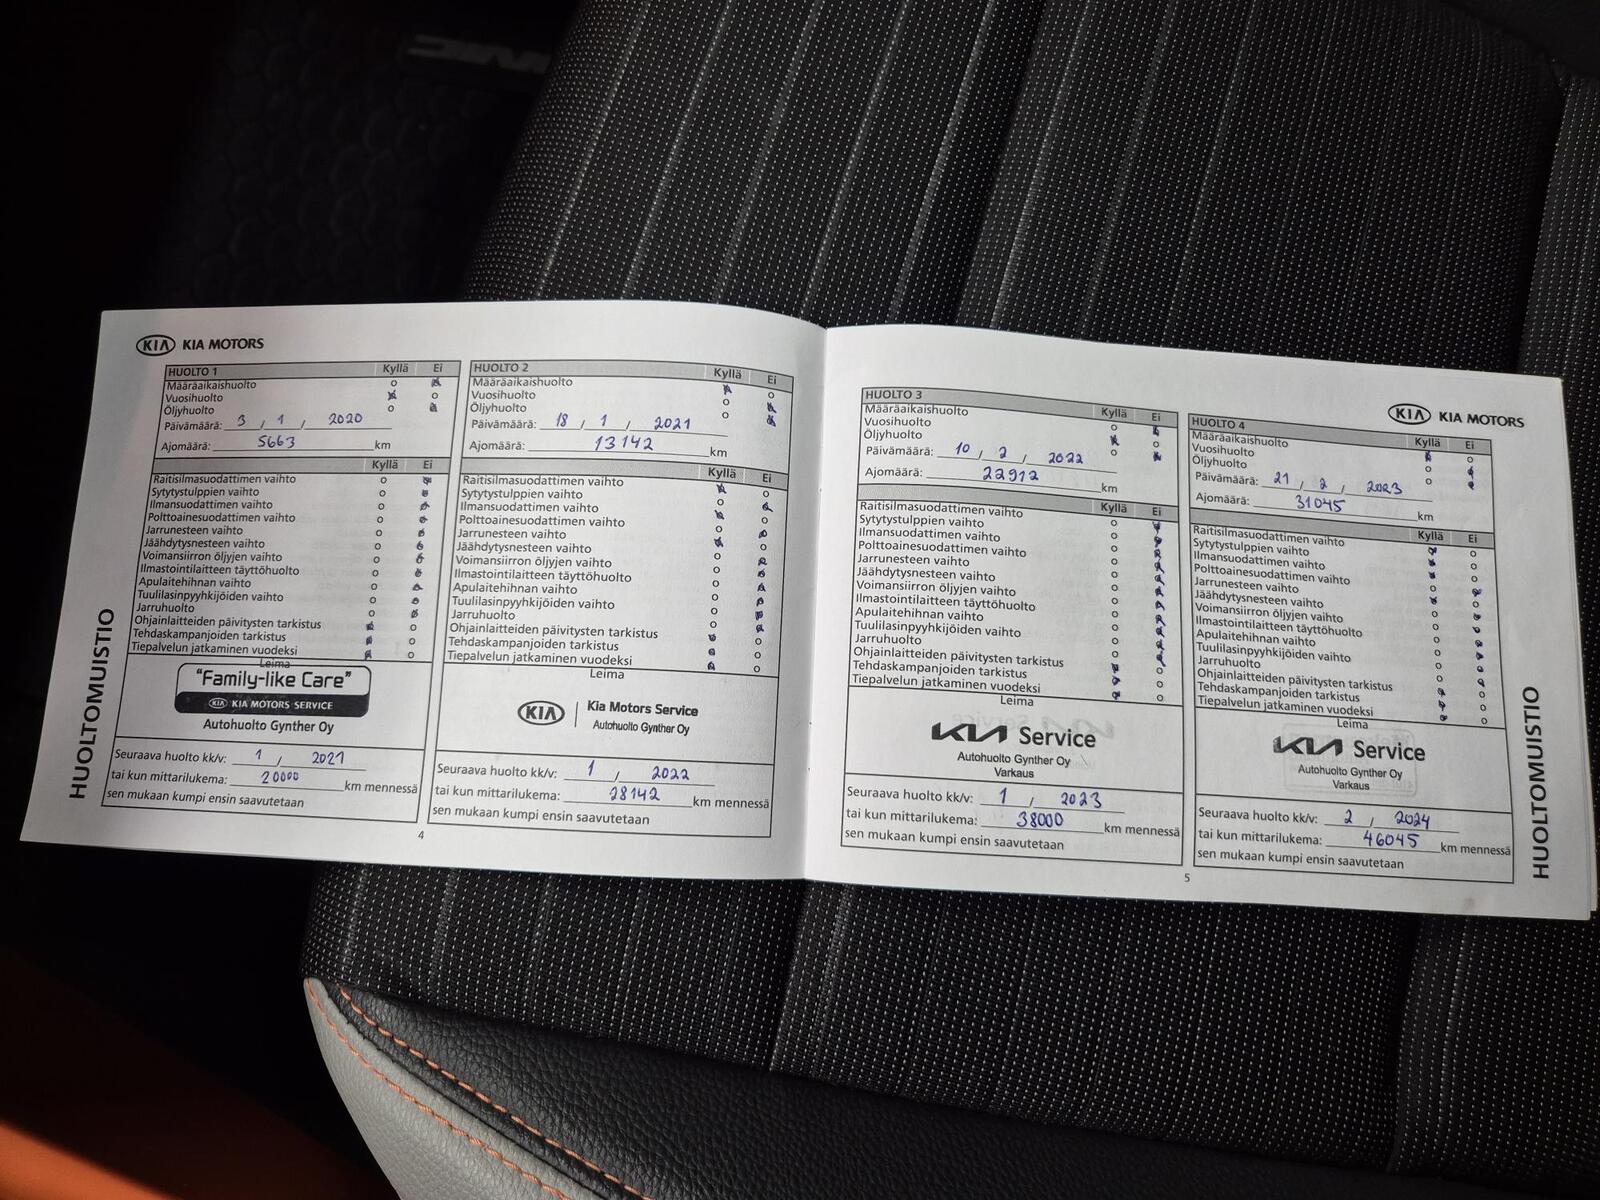 KIA KIA MOTORS
HUOLTO 1 Kyllä Ei
Määräaikaishuolto
Vuosihuolto
Öljyhuolto
Päivämäärä: 3 / 1 / 2020
Ajomäärä: 5663 km
Kyllä Ei
Raitisilmasuodattimen vaihto
Sytytystulppien vaihto
Ilmansuodattimen vaihto
Polttoainesuodattimen vaihto
Jarrunesteen vaihto
Jäähdytysnesteen vaihto
Voimansiirron öljyjen vaihto
Ilmastointilaitteen täyttöhuolto
Apulaitehihnan vaihto
Tuulilasinpyyhkijöiden vaihto
Jarruhuolto
Ohjainlaitteiden päivitysten tarkistus
Tehdaskampanjoiden tarkistus
Tiepalvelun jatkaminen vuodeksi
Leima
"Family-like Care"
KIA KIA MOTORS SERVICE
Autohuolto Gynther Oy
Seuraava huolto kk/v: 1 / 2021
tai kun mittarilukema: 20000 km mennessä
sen mukaan kumpi ensin saavutetaan
HUOLTOMUISTIO
HUOLTO 2 Kyllä Ei
Määräaikaishuolto
Vuosihuolto
Öljyhuolto
Päivämäärä: 18 / 1 / 2021
Ajomäärä: 13142 km
Kyllä Ei
Raitisilmasuodattimen vaihto
Sytytystulppien vaihto
Ilmansuodattimen vaihto
Polttoainesuodattimen vaihto
Jarrunesteen vaihto
Jäähdytysnesteen vaihto
Voimansiirron öljyjen vaihto
Ilmastointilaitteen täyttöhuolto
Apulaitehihnan vaihto
Tuulilasinpyyhkijöiden vaihto
Jarruhuolto
Ohjainlaitteiden päivitysten tarkistus
Tehdaskampanjoiden tarkistus
Tiepalvelun jatkaminen vuodeksi
Leima
KIA Kia Motors Service
Autohuolto Gynther Oy
Seuraava huolto kk/v: 1 / 2022
tai kun mittarilukema: 28142 km mennessä
sen mukaan kumpi ensin saavutetaan
4
HUOLTO 3 Kyllä Ei
Määräaikaishuolto
Vuosihuolto
Öljyhuolto
Päivämäärä: 10 / 2 / 2022
Ajomäärä: 22912 km
Kyllä Ei
Raitisilmasuodattimen vaihto
Sytytystulppien vaihto
Ilmansuodattimen vaihto
Polttoainesuodattimen vaihto
Jarrunesteen vaihto
Jäähdytysnesteen vaihto
Voimansiirron öljyjen vaihto
Ilmastointilaitteen täyttöhuolto
Apulaitehihnan vaihto
Tuulilasinpyyhkijöiden vaihto
Jarruhuolto
Ohjainlaitteiden päivitysten tarkistus
Tehdaskampanjoiden tarkistus
Tiepalvelun jatkaminen vuodeksi
Leima
KIA Service
Autohuolto Gynther Oy
Varkaus
Seuraava huolto kk/v: 1 / 2023
tai kun mittarilukema: 38000 km mennessä
sen mukaan kumpi ensin saavutetaan
KIA KIA MOTORS
HUOLTO 4 Kyllä Ei
Määräaikaishuolto
Vuosihuolto
Öljyhuolto
Päivämäärä: 21 / 2 / 2023
Ajomäärä: 31045 km
Kyllä Ei
Raitisilmasuodattimen vaihto
Sytytystulppien vaihto
Ilmansuodattimen vaihto
Polttoainesuodattimen vaihto
Jarrunesteen vaihto
Jäähdytysnesteen vaihto
Voimansiirron öljyjen vaihto
Ilmastointilaitteen täyttöhuolto
Apulaitehihnan vaihto
Tuulilasinpyyhkijöiden vaihto
Jarruhuolto
Ohjainlaitteiden päivitysten tarkistus
Tehdaskampanjoiden tarkistus
Tiepalvelun jatkaminen vuodeksi
Leima
KIA Service
Autohuolto Gynther Oy
Varkaus
Seuraava huolto kk/v: 2 / 2024
tai kun mittarilukema: 46045 km mennessä
sen mukaan kumpi ensin saavutetaan
5
HUOLTOMUISTIO